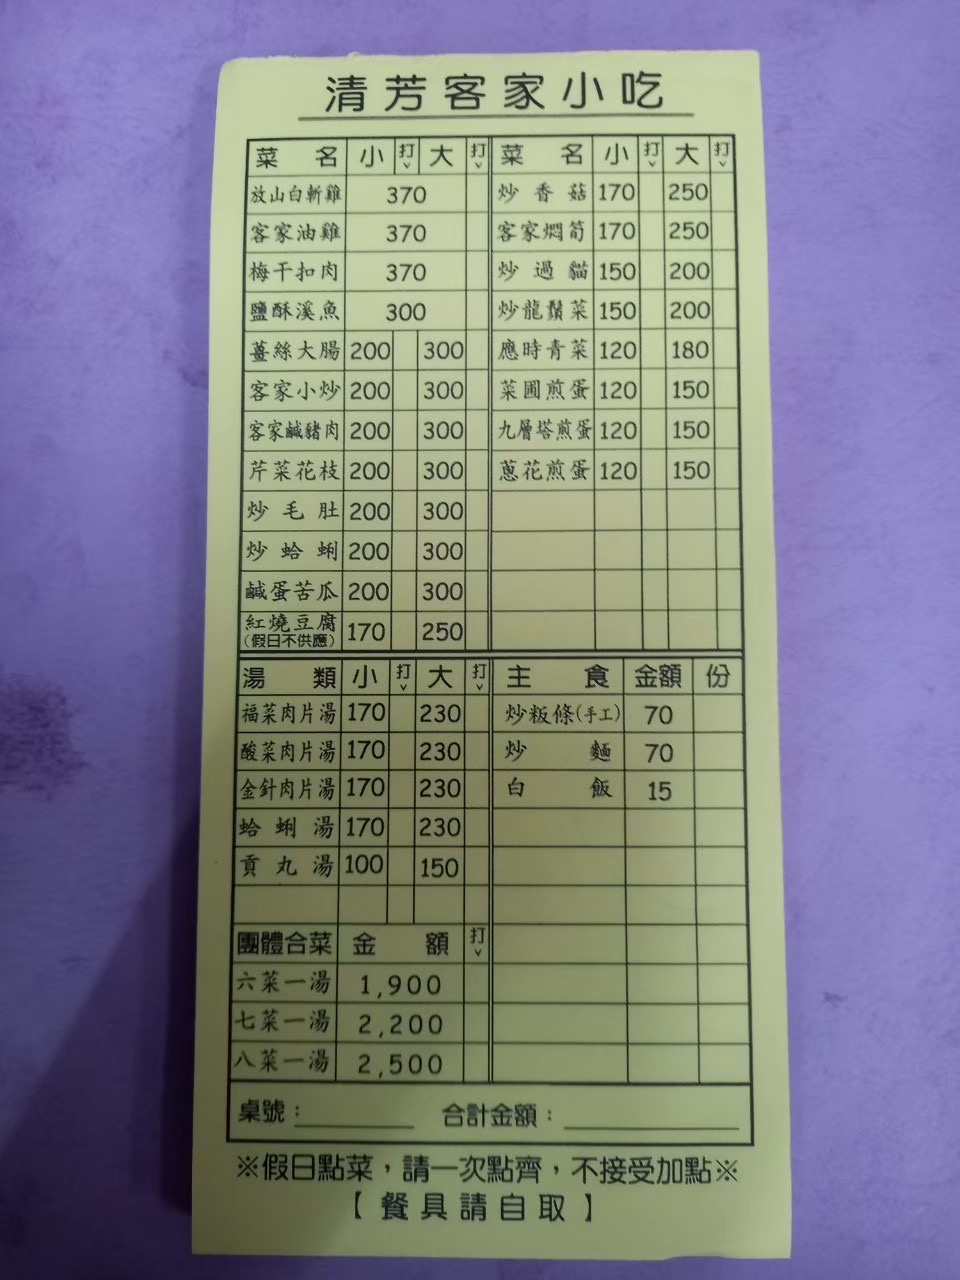 清芳客家小吃
菜名 小 打ˇ 大 打ˇ 菜名 小 打ˇ 大 打ˇ
放山白斬雞 370 炒香菇 170 250
客家油雞 370 客家燜筍 170 250
梅干扣肉 370 炒過貓 150 200
鹽酥溪魚 300 炒龍鬚菜 150 200
薑絲大腸 200 300 應時青菜 120 180
客家小炒 200 300 菜圃煎蛋 120 150
客家鹹豬肉 200 300 九層塔煎蛋 120 150
芹菜花枝 200 300 蔥花煎蛋 120 150
炒毛肚 200 300
炒蛤蜊 200 300
鹹蛋苦瓜 200 300
紅燒豆腐 170 250
(假日不供應)
湯類 小 打ˇ 大 打ˇ 主食 金額 份
福菜肉片湯 170 230 炒粄條(手工) 70
酸菜肉片湯 170 230 炒麵 70
金針肉片湯 170 230 白飯 15
蛤蜊湯 170 230
貢丸湯 100 150
團體合菜 金額 打ˇ
六菜一湯 1,900
七菜一湯 2,200
八菜一湯 2,500
桌號： 合計金額：
※假日點菜，請一次點齊，不接受加點※
【餐具請自取】